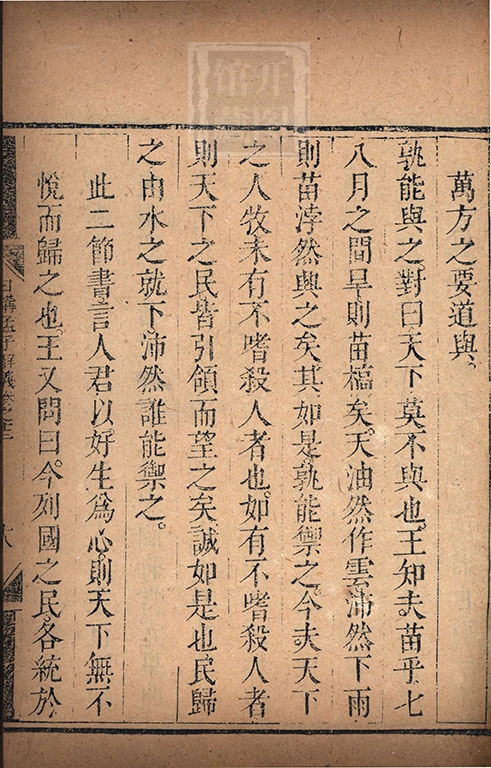 萬方之要道與。
孰能與之。對曰。天下莫不與也。王知夫苗乎。七
八月之間旱。則苗槁矣。天油然作雲。沛然下雨。
則苗浡然興之矣。其如是。孰能禦之。今夫天下
之人牧。未有不嗜殺人者也。如有不嗜殺人者。
則天下之民。皆引領而望之矣。誠如是也。民歸
之由水之就下。沛然誰能禦之。
此二節書。言人君以好生爲心。則天下無不
悅而歸之也。王又問曰。今列國之民。各統於
日講孟子解義卷之